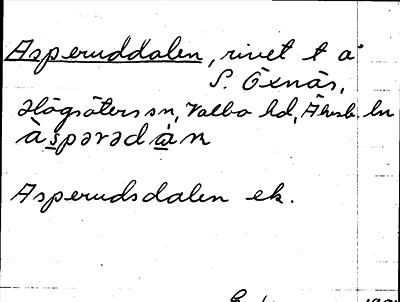 Asperuddalen, rivet t a°
S. Öxnäs,
Högsäters sn, Valbo hd, Älvsb. ln
àspərədàn
Asperudsdalen ek.